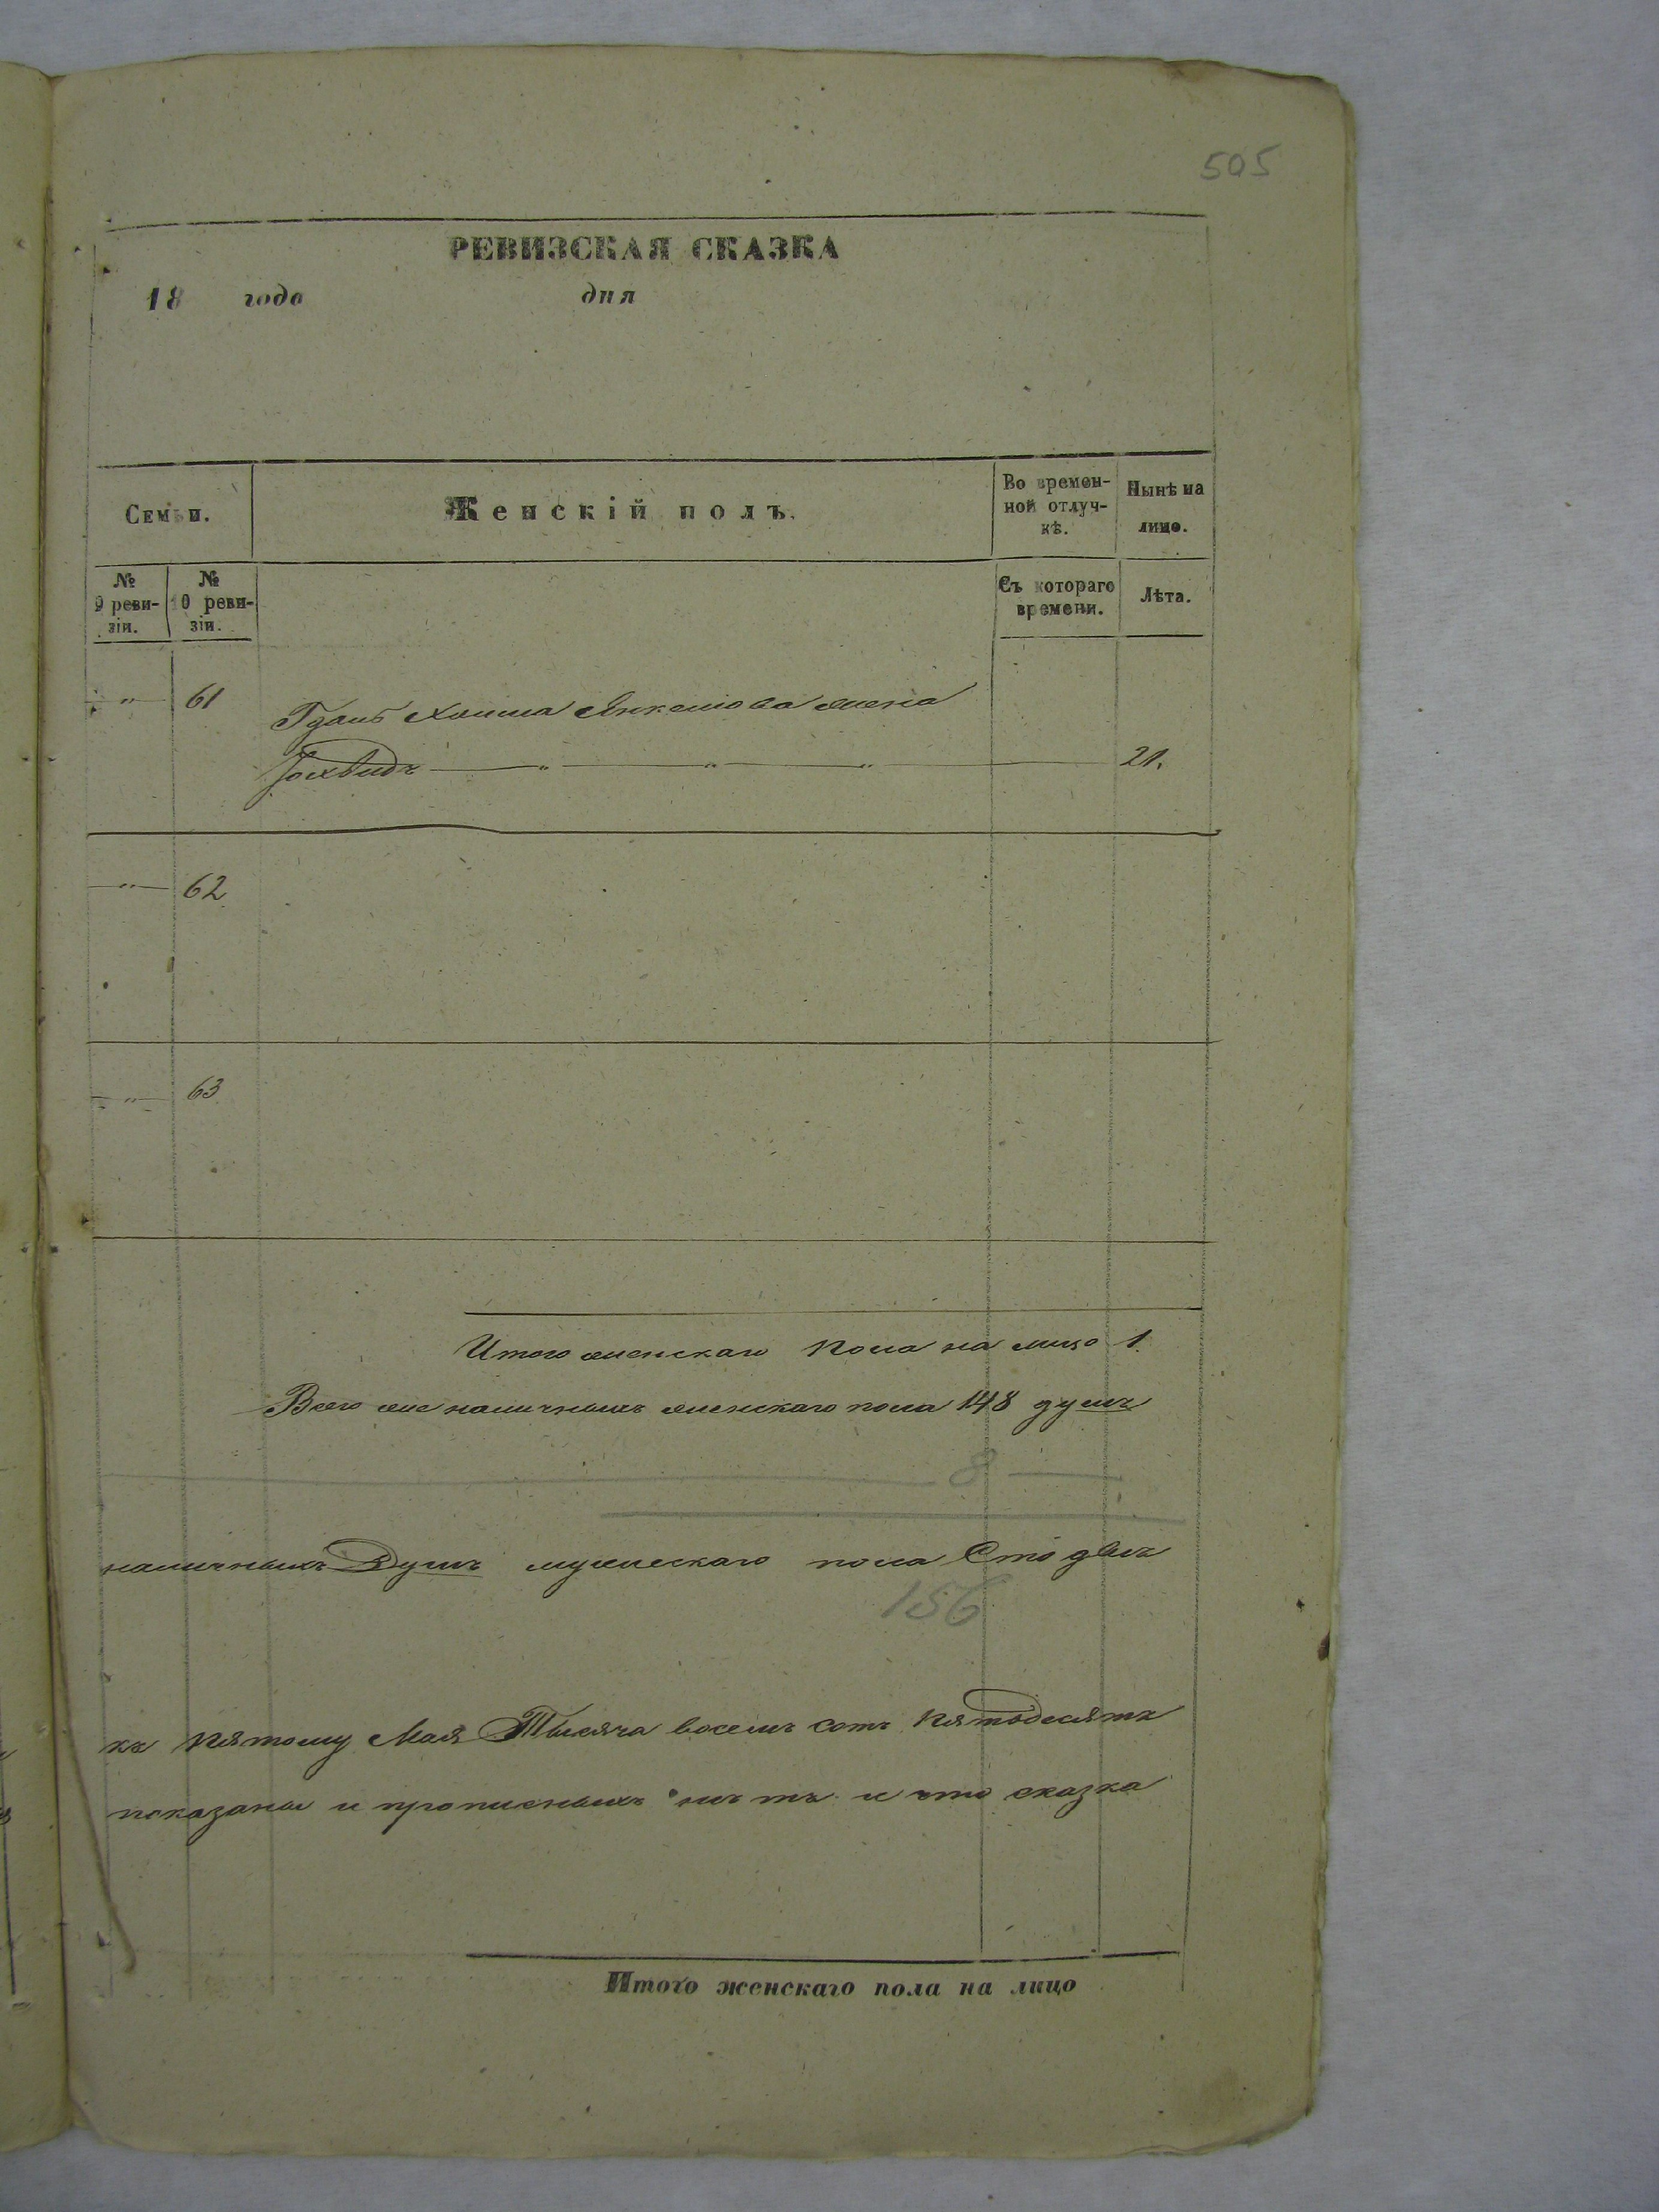 505
РЕВИЗСКАЯ СКАЗКА
18 года дня
Семьи. Женскій полъ. Во времен-
ной отлуч-
кѣ. Нынѣ на
лицо.
№
9 реви-
зіи. №
10 реви-
зіи. Съ котораго
времени. Лѣта.
" 61 Хаима Янкелиова жена
" " " 21.
" 62
" 63
Итого женскаго пола на лицо 1.
Всего же наличныхъ женскаго пола 148 душъ
8
наличныхъ Душъ мужескаго пола Сто двѣ
156
къ пятому Мая Тысяча восемь сотъ пятьдесятъ
показаны и прописныхъ нѣтъ и что сказка
Итого женскаго пола на лицо